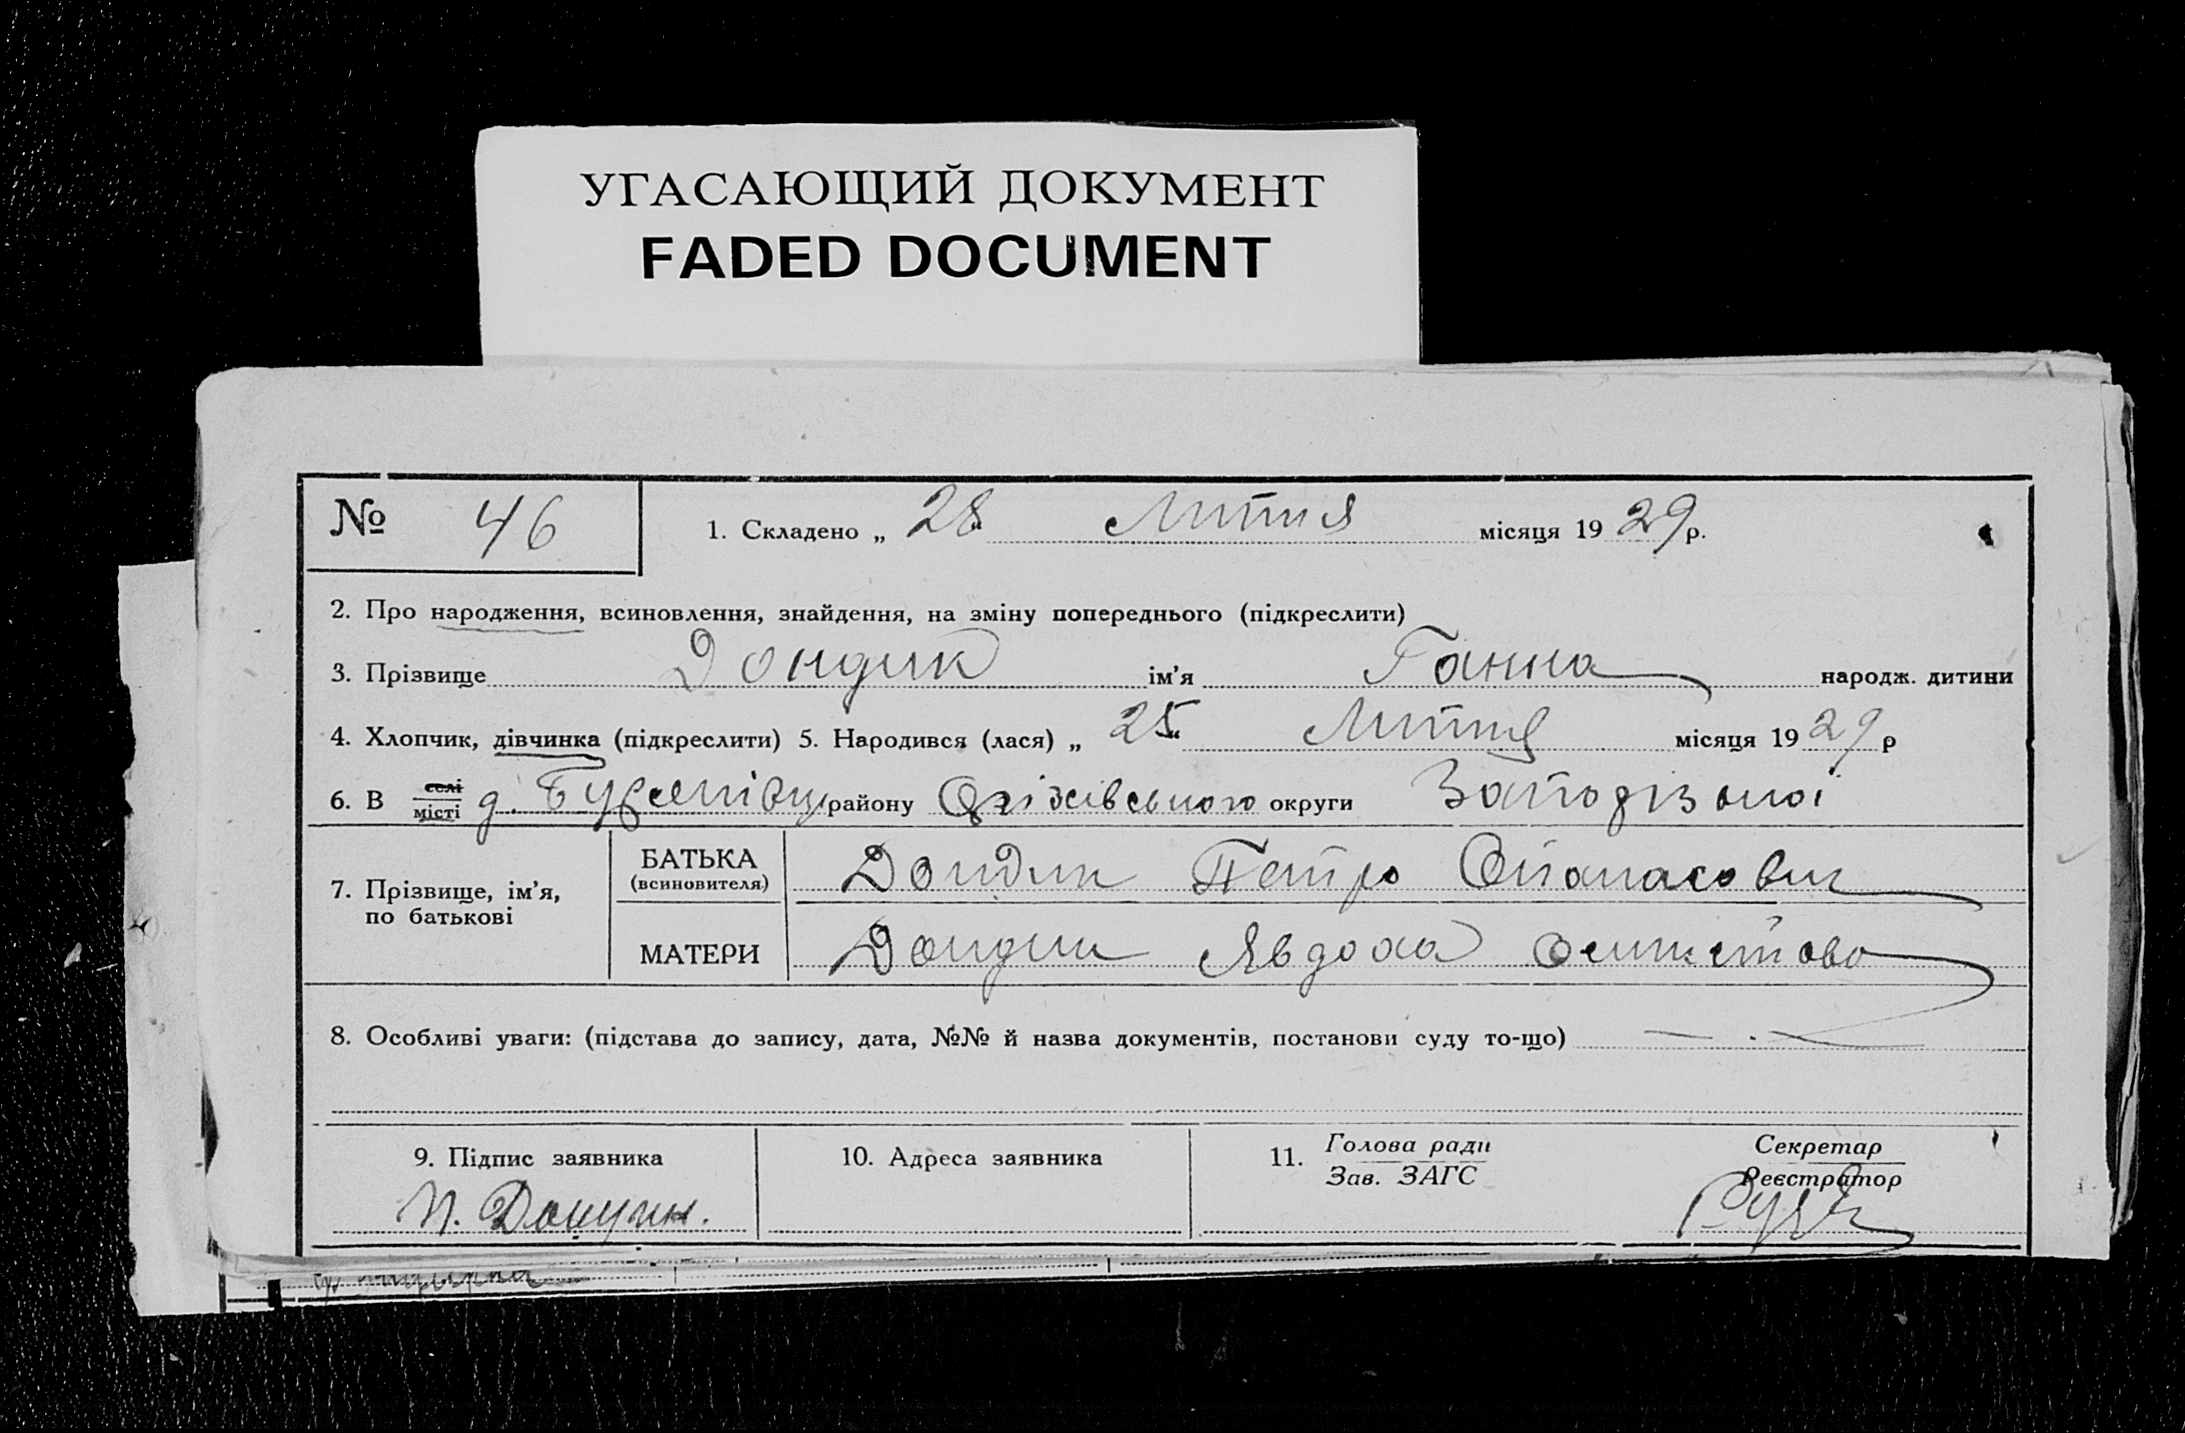 УГАСАЮЩИЙ ДОКУМЕНТ
FADED DOCUMENT
№ 46
1. Складено „ 28 Липня місяця 1929 р.
2. Про народження, всиновлення, знайдення, на зміну попереднього (підкреслити)
3. Прізвище Дондик ім'я Ганна народж. дитини
4. Хлопчик, дівчинка (підкреслити) 5. Народився (лася) „ 25 " Липня місяця 1929 р
6. В селі місті д. району Оріхівського округи Запорізької
7. Прізвище, ім'я, по батькові
БАТЬКА (всиновителя) Дондик Петро Опанасович
МАТЕРИ Дондик Явдоха
8. Особливі уваги: (підстава до запису, дата, №№ й назва документів, постанови суду то-що)
9. Підпис заявника
П. Дондик.
10. Адреса заявника
11. Голова ради
Зав. ЗАГС
Секретар
Реєстратор